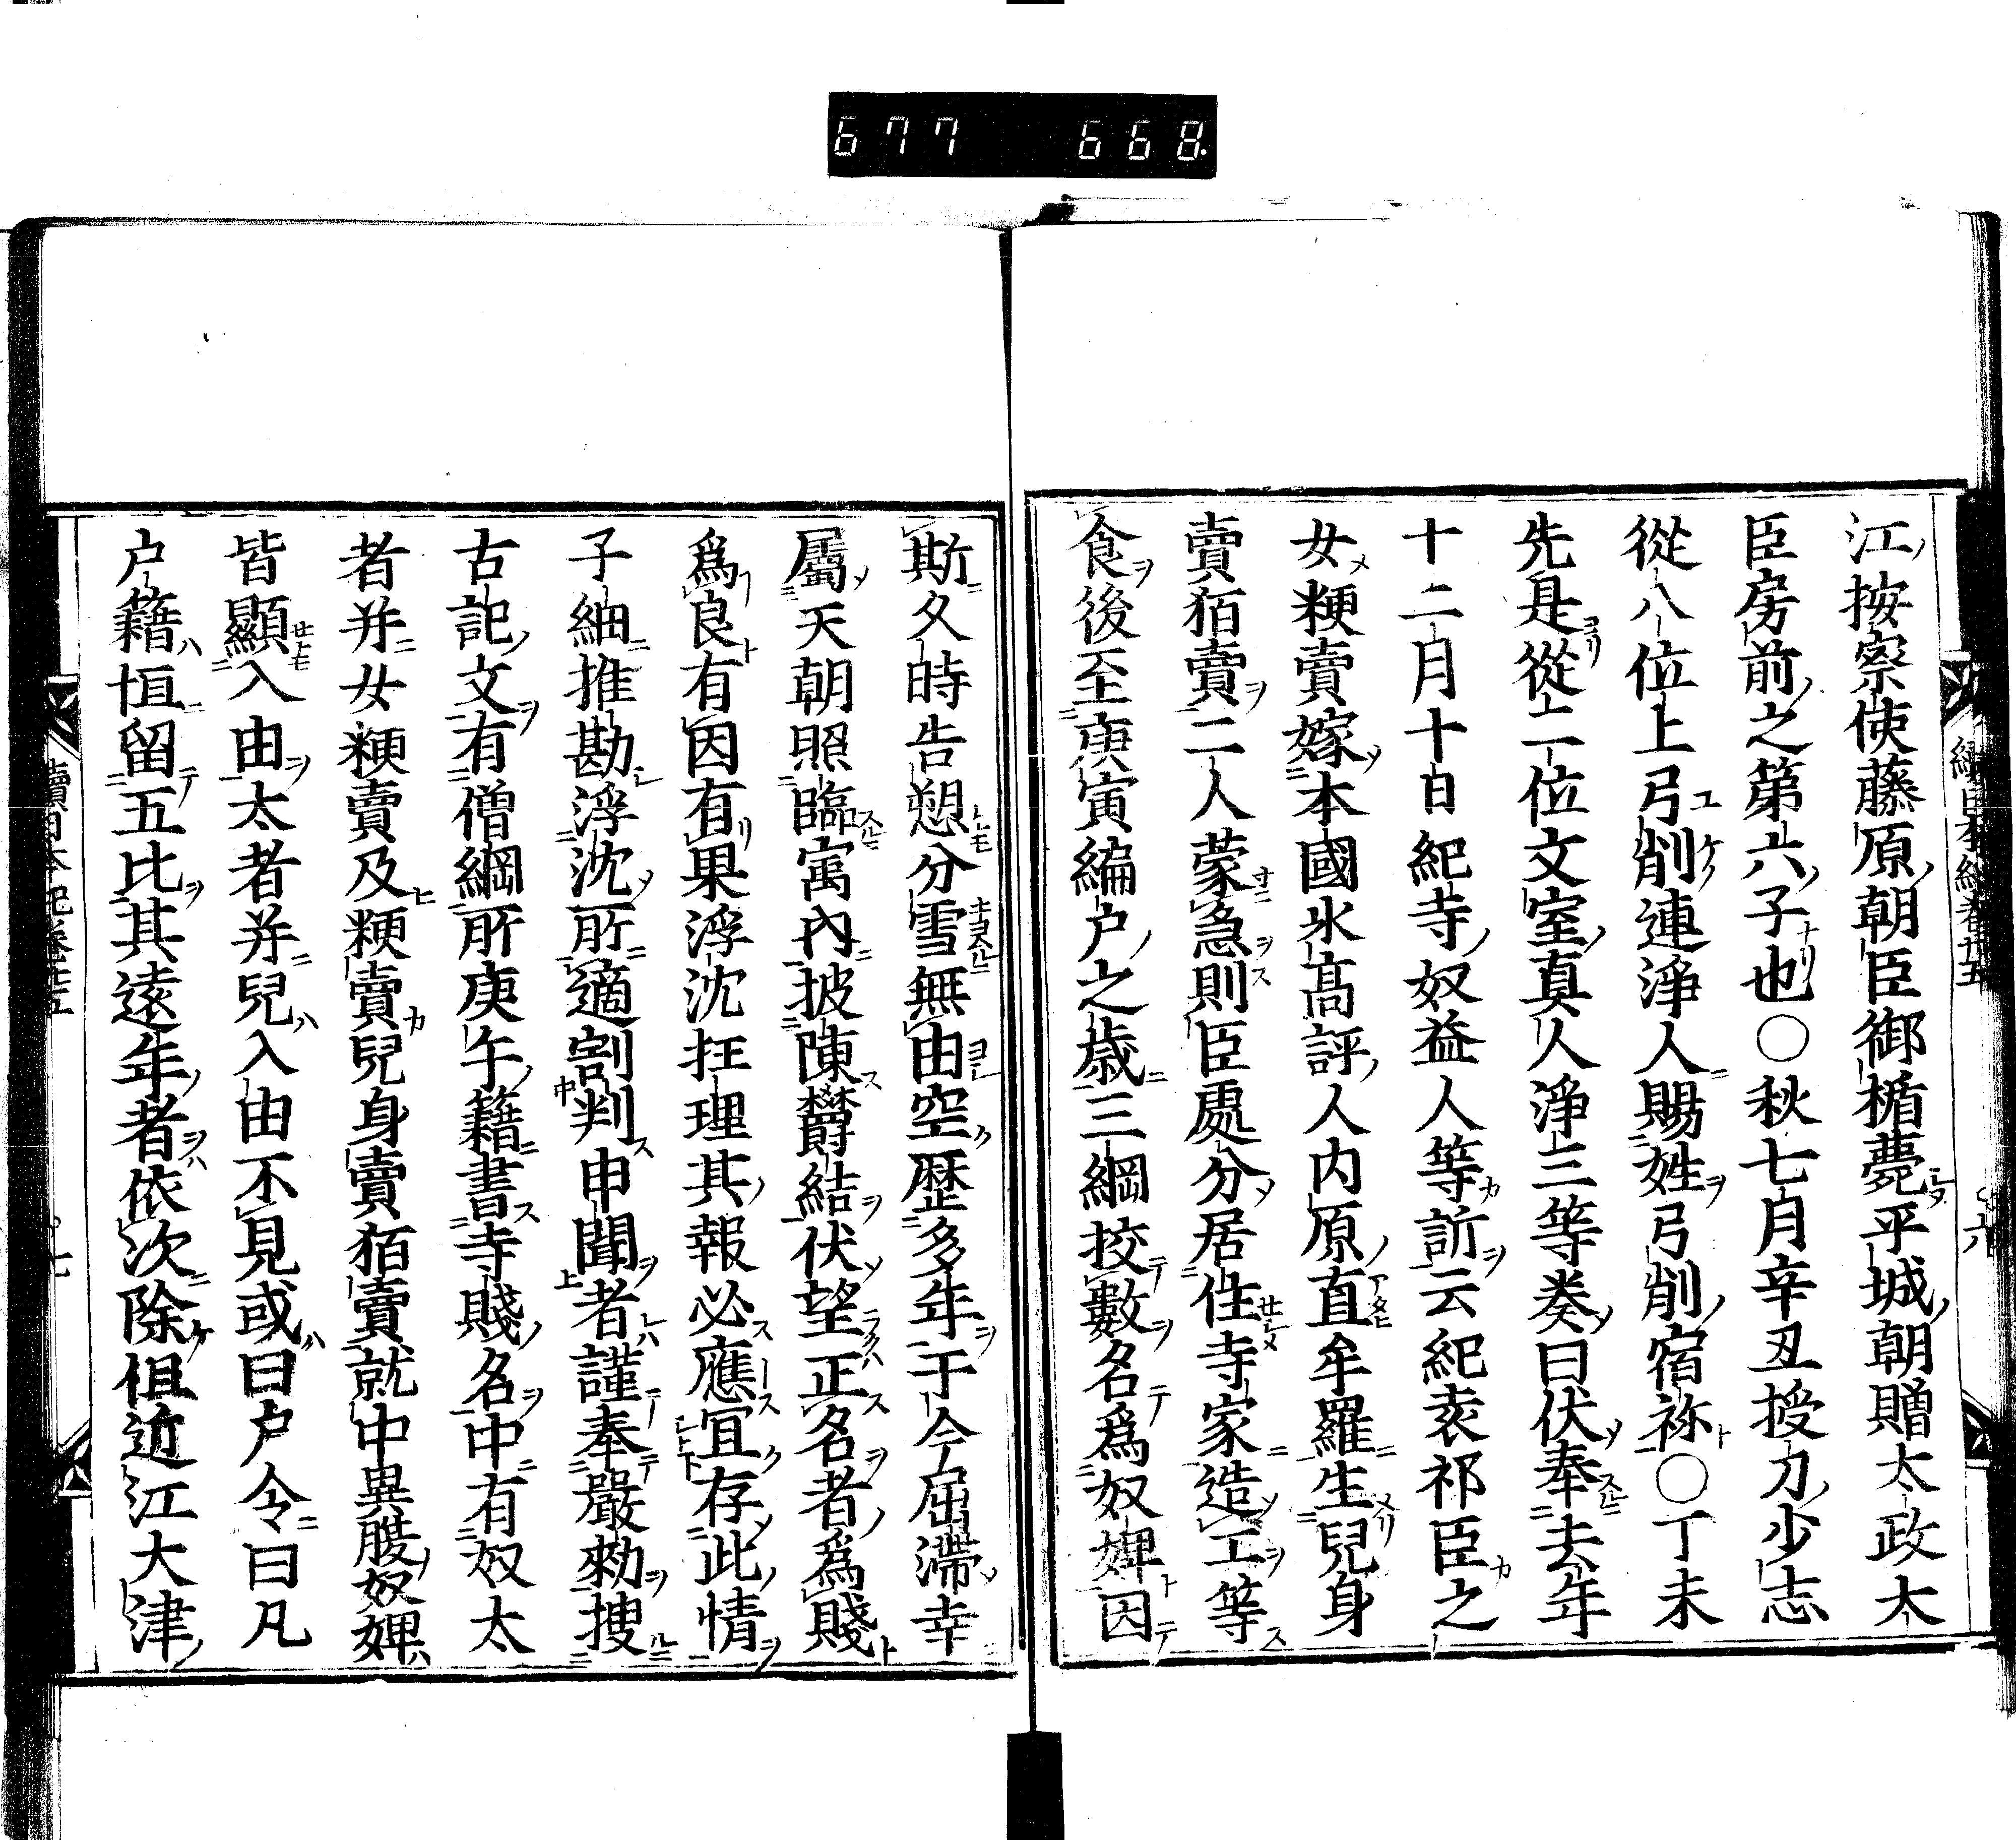 677 668.
江按察使藤原朝臣御楯薨平城朝贈太政太
臣房前之第六子也〇秋七月辛丑授刀少志
從八位上弓削連淨人賜姓弓削宿祢〇丁未
先是從二位文室真人淨三等奏曰伏奉去年
十二月十日紀寺奴益人等訴云紀袁祁臣之
女粳賣嫁本國氷髙評人内原直牟羅生兒身
賣狛賣二人蒙急則臣處分居住寺家造工等
食後至庚寅編户之歳三綱挍數名爲奴婢因
斯久時告愬分雪無由空歷多年于今屈滯幸
屬天朝照臨寓内披陳欝結伏望正名者爲賤
爲良有因有果浮沈抂理其報必應冝存此情
子細推勘浮沈所適割判申聞者謹奉嚴勑搜
古記文有僧綱所庚午籍書寺賤名中有奴太
者并女粳賣及粳賣兒身賣狛賣就中異腹奴婢
皆顯入由太者并兒入由不見或曰户令曰凡
户籍恒留五比其遠年者依次除但近江大津